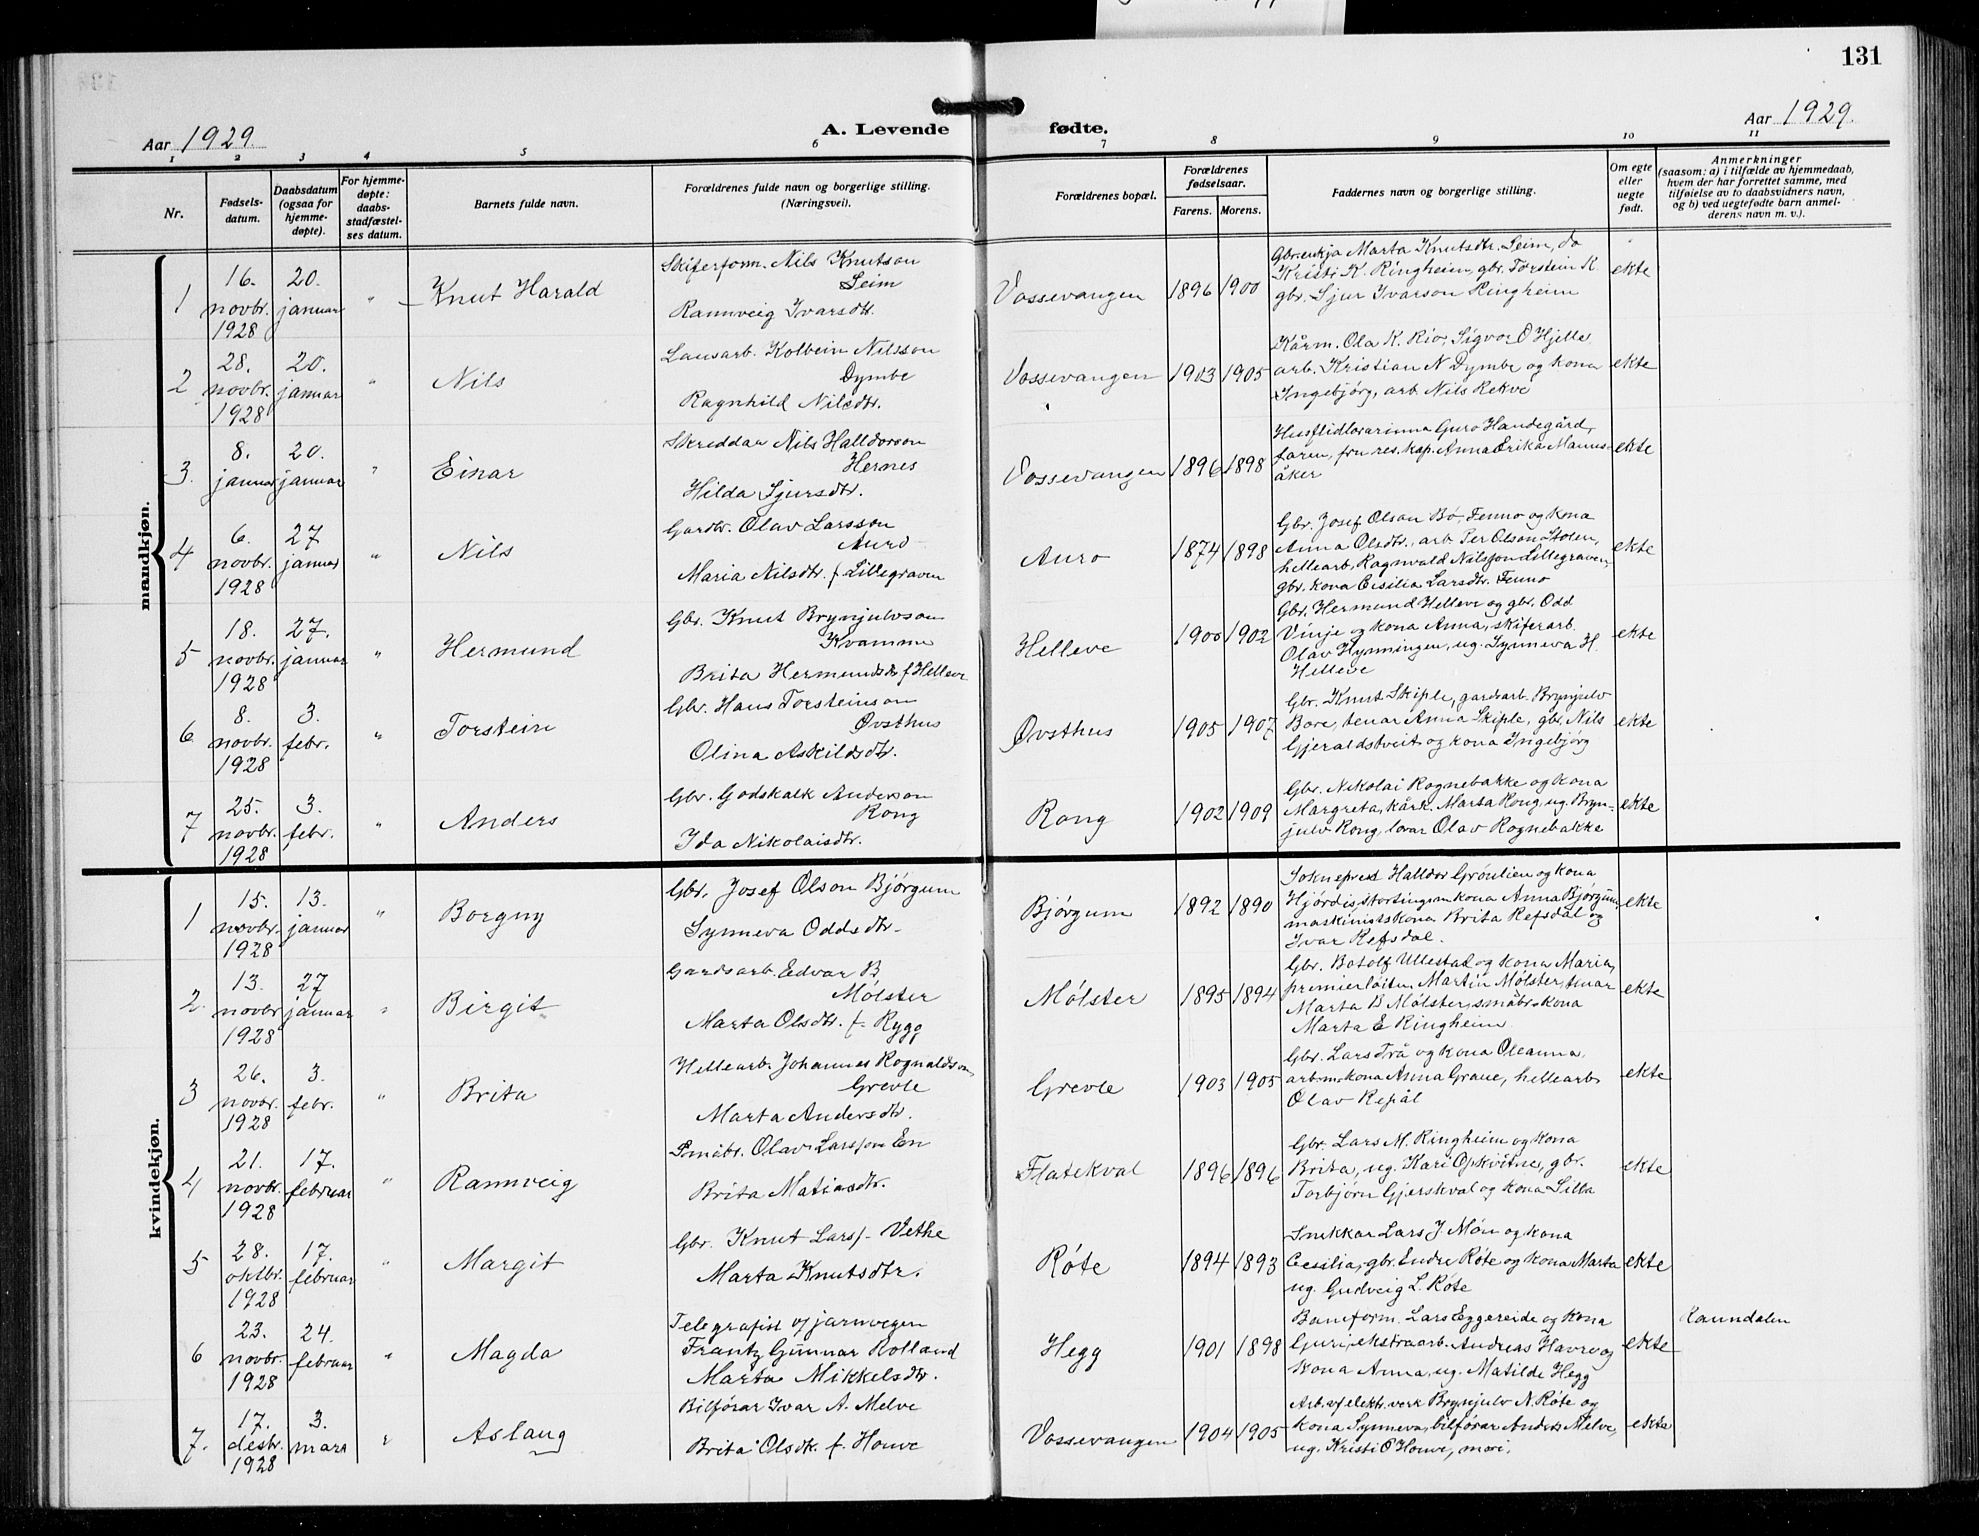 131
Aar 1929.
A. Levende
fødte.
Aar 1929.
1 2 3 4 5 6 7 8 9 10 11
Nr.
Fødsels-
datum.
Daabsdatum
(ogsaa for
hjemme-
døpte).
For hjemme-
døpte:
daabs-
stadfæstel-
ses datum.
Barnets fulde navn.
Forældrenes fulde navn og borgerlige stilling.
(Næringsvei).
Forældrenes bopæl.
Forældrenes
fødselsaar.
Farens. Morens.
Faddernes navn og borgerlige stilling.
Om egte
eller
uegte
født.
Anmerkninger
(saasom: a) i tilfælde av hjemmedaab,
hvem der har forrettet samme, med
tilføielse av to daabsvidners navn,
og b) ved uegtefødte barn anmel-
derens navn m. v.).
mandkjøn.
1
16.
novbr.
1928
20.
januar
"
Knut Harald
Skiferform. Nils Knutson
Seim
Rannveig Ivarsdtr.
Vossevangen
1896 1900
Gbr.enkja Marta Knutsdtr. Seim, do
Kristi K. Ringheim, gbr. Torstein K.
gbr. Sjur Ivarson Ringheim
ekte
2
28.
novbr.
1928
20.
januar
"
Nils
Lausarb. Kolbein Nilsson
Dymbe
Ragnhild Nilsdtr.
Vossevangen
1903 1905
Kårm. Ola K. Rio, Sigvor O Hjelle,
arb. Kristian N Dymbe og kona
Ingebjørg, arb. Nils Rekve
ekte
3.
8.
januar
20.
januar
"
Einar
Skreddar Nils Halldorson
Hernes
Hilda Sjursdtr.
Vossevangen
1896 1898
Husflidlærarinna Guro Handegård,
faren, fru res. kap. Anna Erika Mannes-
åker
ekte
4
6.
novbr.
1928
27
januar
"
Nils
Gardbr. Olav Larsson
Auro
Maria Nilsdtr. f. Lillegraven
Auro
1874 1898
Gbr. Josef Olson Bø, Fenno og kona
Anna Olsdtr., arb. Per Olson Stolen,
hellearb. Ragnvald Nilsson Lillegraven,
gbr. kona Cesilia Larsdtr. Fenno
ekte
5
18.
novbr.
1928
27.
januar
"
Hermund
Gbr. Knut Brynjulvson
Kvamme
Brita Hermundsdtr f Helleve
Helleve
1900 1902
Gbr. Hermund Helleve og gbr. Odd
Vinje og kona Anna, skiferarb.
Olav Hynningen, ug. Synneva H.
Helleve
ekte
6
8.
novbr.
1928
3.
febr.
"
Torstein
Gbr. Hans Torsteinson
Øvsthus
Olina Askildsdtr.
Øvsthus
1905 1907
Gbr. Knut Skiple, gardsarb. Brynjulv
Bore, tenar Anna Skiple, gbr. Nils
Gjeraldstveit og kona Ingebjørg
ekte
7
25.
novbr.
1928
3.
febr.
"
Anders
Gbr. Godskalk Anderson
Rong
Ida Nikolaisdtr.
Rong
1902 1909
Gbr. Nikolai Rognebakke og kona
Margreta, kårk. Marta Rong, ug. Bryn-
julv Rong, lærar Olav Rognebakke
ekte
kvindekjøn.
1
15.
novbr.
1928
13.
januar
"
Borgny
Gbr. Josef Olson Bjørgum
Synneva Oddsdtr.
Bjørgum
1892 1890
Sokneprest Halldor Grønlien og kona
Hjørdis, stortingsm. kona Anna Bjørgum
maskinistskona Brita Refsdal og
Ivar Refsdal.
ekte
2.
13.
novbr
1928
27
januar
"
Birgit
Gardsarb. Edvar B
Mølster
Marta Olsdtr. f. Rygg
Mølster
1895 1894
Gbr. Botolf Ullestad og kona Maria,
premierløitn. Martin Mølster, tenar
Marta B Mølster, småbr. kona
Marta E Ringheim
ekte
3
26.
novbr.
1928
3.
febr.
"
Brita
Hellearb. Johannes Rognaldson,
Grevle
Marta Andersdtr.
Grevle
1903 1905
Gbr. Lars Trå og kona Oleanna,
arbm. kona Anna Graue, hellearb.
Olav Repål
ekte
4
21.
novbr.
1928
17.
februar
"
Rannveig
Småbr. Olav Larsson En
Brita Matiasdtr.
Flatekval
1896 1896
Gbr. Lars M. Ringheim og kona
Brita, ug. Kari Opkvitne, gbr.
Torbjørn Gjerskval og kona Silla
ekte
5
28.
oktbr.
1928
17.
februar
"
Margit
Gbr. Knut Larss. Vethe
Marta Knutsdtr.
Røte
1894 1893
Snekkar Lars J Møn og kona
Cesilia, gbr. Endre Røte og kona Marta
ug. Gudveig L. Røte
ekte
6
23.
novbr.
1928
24.
februar
"
Magda
Telegrafist v/ jarnvegen
Frantz Gunnar Rolland
Marta Mikkelsdtr.
Hegg
1901 1898
Baneform. Lars Eggereide og kona
Guri, ekstraarb. Andreas Havro og
kona Anna, ug. Matilde Hegg
ekte
Raundalen
7.
17.
desbr.
1928
3.
mars
"
Aslaug
Bilførar Ivar A. Melve
Brita Olsdtr. f. Houve
Vossevangen
1904 1905
Arb. v/ elektr. verk Brynjulv N. Røte og
kona Synneva, bilførar Anders Melve,
ug. Kristi O Houve, mori.
ekte